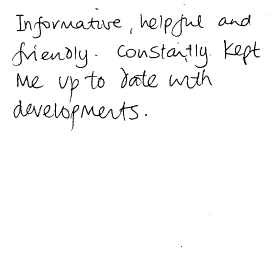 Informative, helpful and
friendly. Constantly kept
me up to date with
developments.